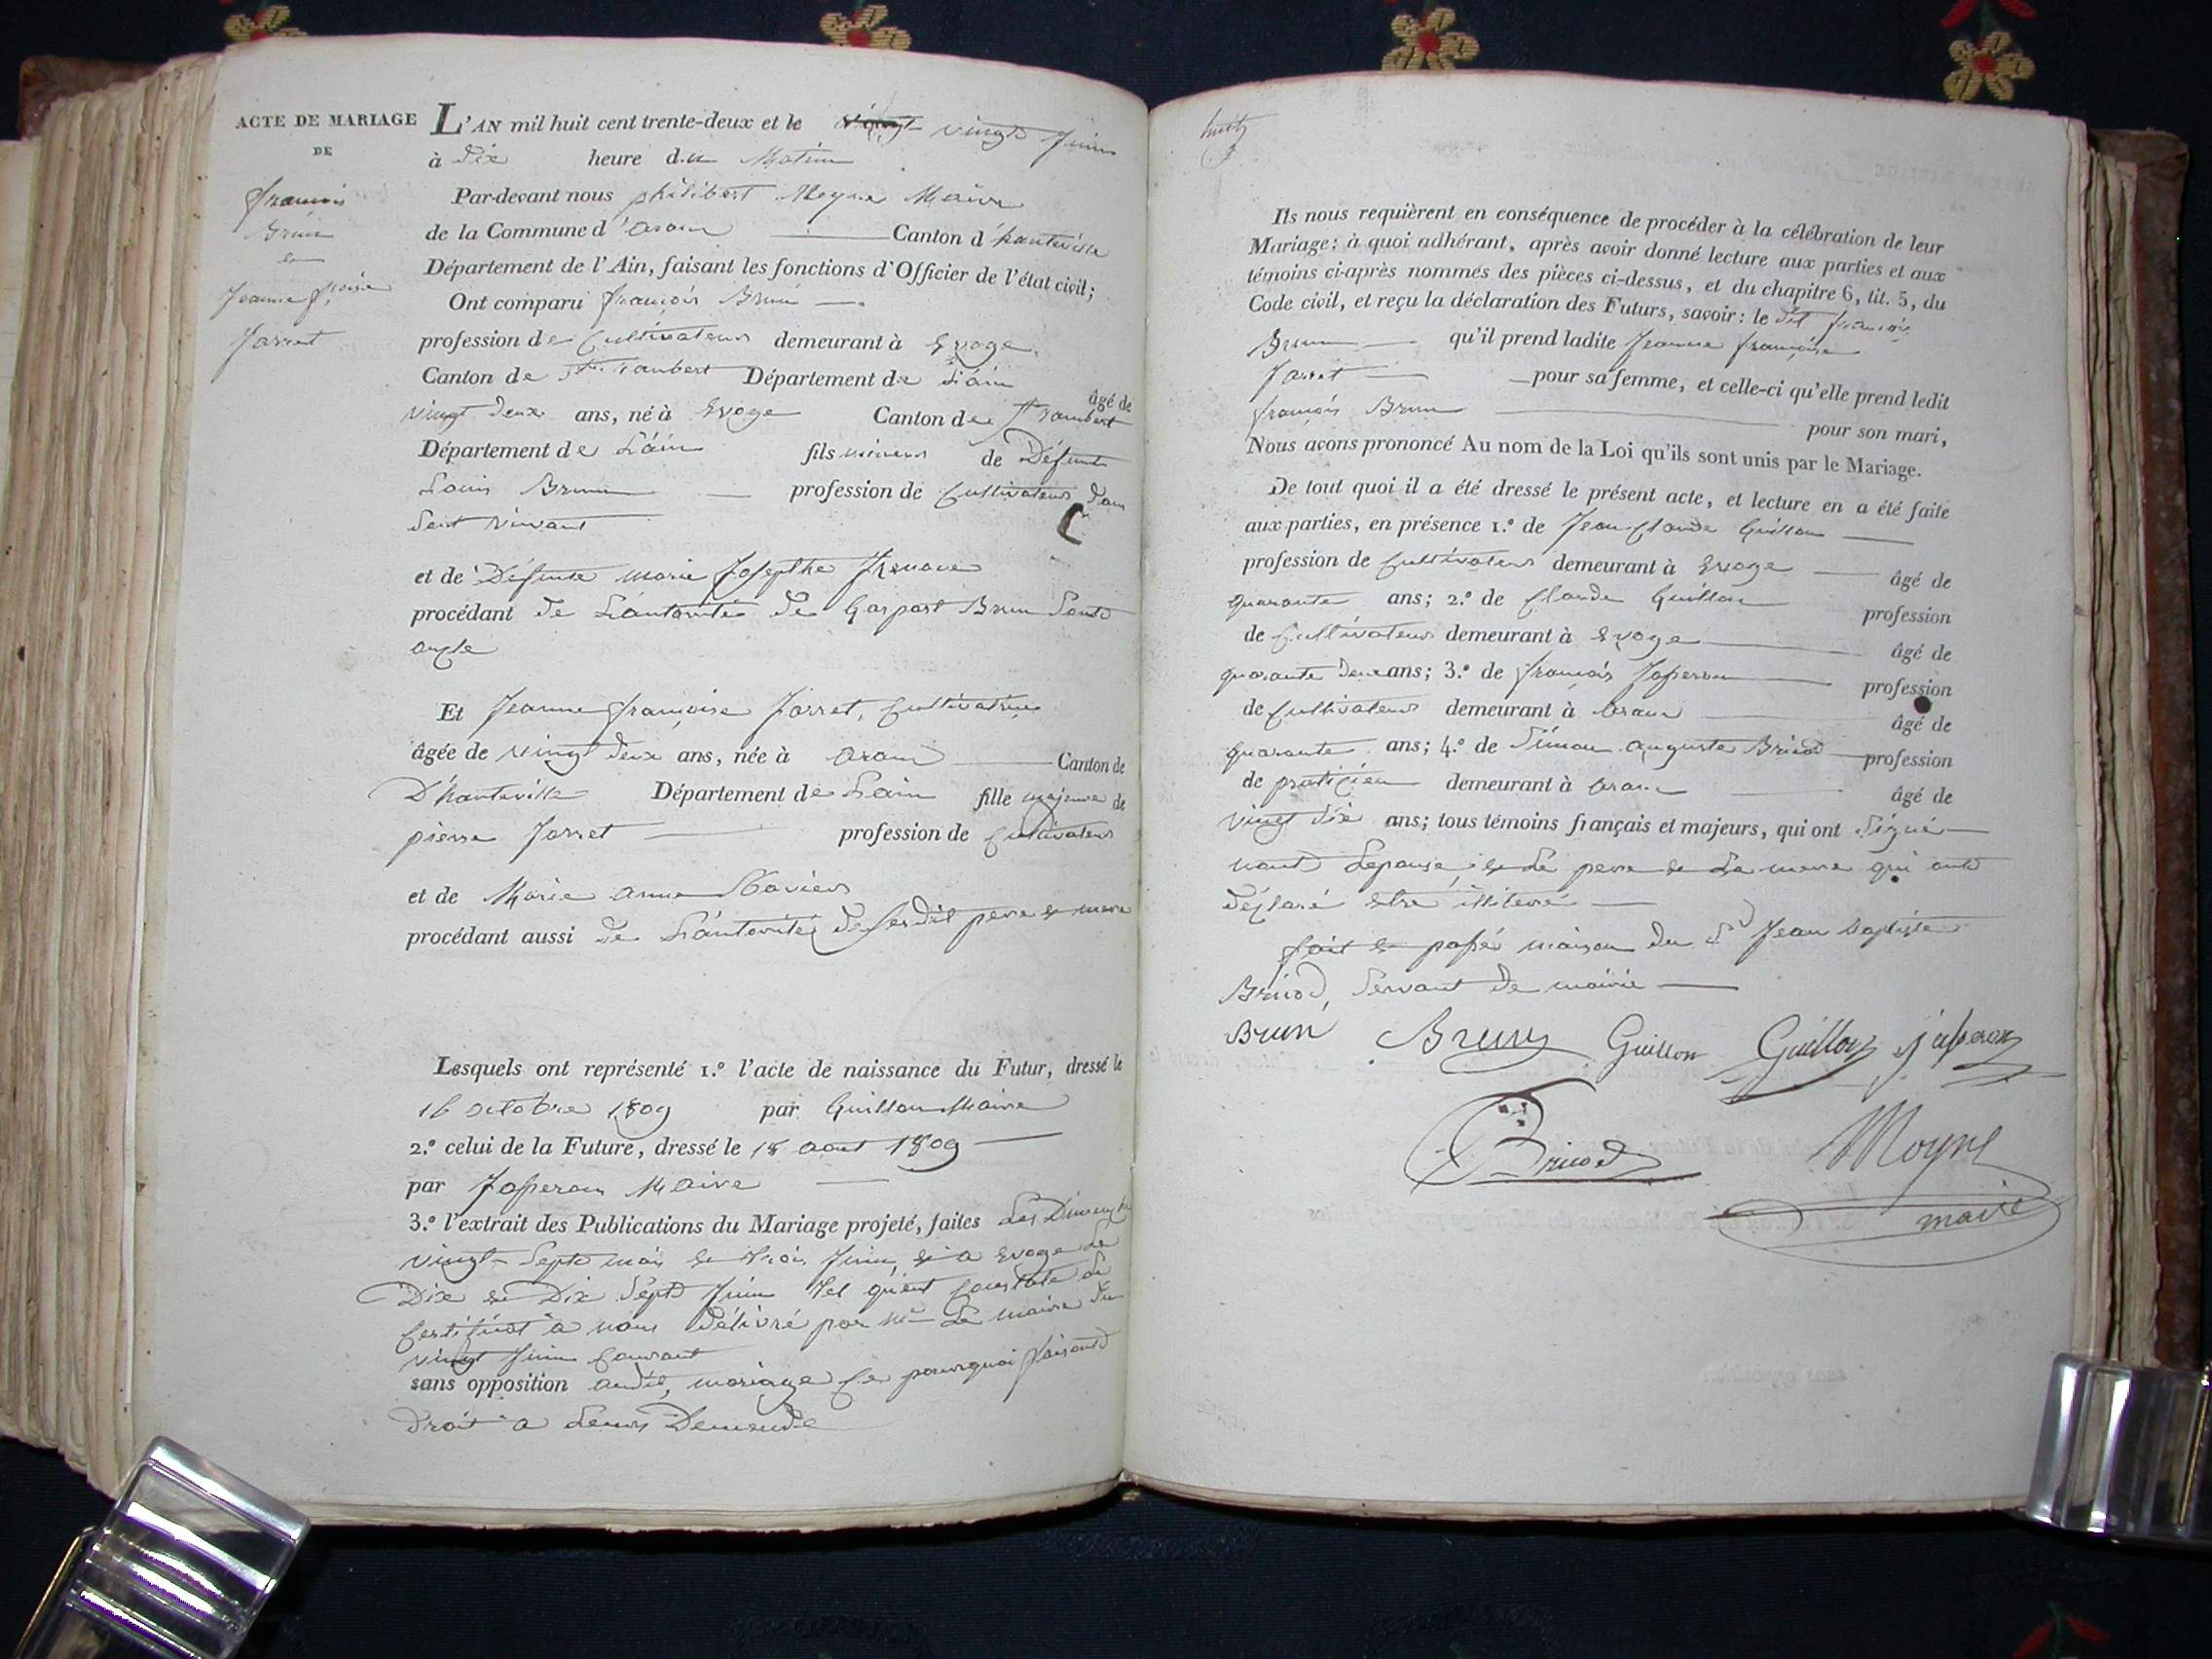 ACTE DE MARIAGE
DE
françois
Brun
et
Jeanne fçoise
Jarret
L'AN mil huit cent trente-deux et le vingt vingt Juin
à dix heure du Matin
Par-devant nous philibert Moyne Maire
de la Commune d'aran Canton d'hauteville
Département de l'Ain, faisant les fonctions d'Officier de l'état civil;
Ont comparu françois Brun
profession de Cultivateur demeurant à Evoge
Canton de St Rambert Département de L'ain âgé de
vingt deux ans, né à Evoge Canton de St rambert
Département de L'ain fils mineur de Défunt
Louis Brun profession de Cultivateur dans
Sont vivant
et de Défunte marie Josepthe
procédant de L'autorité de Gaspart Brun Sont
oncle
Et Jeanne françoise Jarret, Cultivatrice
âgée de vingt deux ans, née à aran Canton de
D'hauteville Département de L'ain fille majeure de
pierre Jarret profession de Cultivateur
et de Marie anne
procédant aussi de L'autorité de sesdit pere et mere
Lesquels ont représenté 1.º l'acte de naissance du Futur, dressé le
16 octobre 1809 par Guillon Maire
2.º celui de la Future, dressé le 18 aout 1809
par Josseran Maire
3.º l'extrait des Publications du Mariage projeté, faites Les Dimenche
vingt Sept mai et trois Juin, et a Evoge Le
Dix et Dix Sept Juin tel qu'ent Constate Le
Certificat a nous délivré par Mr Le maire du
vingt Juin Courant
sans opposition audit, mariage Ce pourquoi faisant
droit a Leurs Demende
huit
Ils nous requièrent en conséquence de procéder à la célébration de leur
Mariage: à quoi adhérant, après avoir donné lecture aux parties et aux
témoins ci-après nommés des pièces ci-dessus, et du chapitre 6, tit. 5, du
Code civil, et reçu la déclaration des Futurs, savoir: le dit françois
Brun qu'il prend ladite Jeanne françoise
Jarret pour sa femme, et celle-ci qu'elle prend ledit
françois Brun pour son mari,
Nous avons prononcé Au nom de la Loi qu'ils sont unis par le Mariage.
De tout quoi il a été dressé le présent acte, et lecture en a été faite
aux parties, en présence 1.º de Jean Claude Guillon
profession de Cultivateur demeurant à Evoge âgé de
quarante ans; 2.º de Claude Guillon profession
de Cultivateur demeurant à Evoge âgé de
quarante deux ans; 3.º de françois Josseran profession
de Cultivateur demeurant à aran âgé de
quarante ans; 4.º de Simon auguste Bricod profession
de praticien demeurant à aran âgé de
vingt dix ans; tous témoins français et majeurs, qui ont Signé
nont Lepouse, et Le pere et La mere qui ont
déclaré etre illiteré
fait et passé maison du Sr Jean Baptiste
Bricod, Servant de mairie
Brun Brun Guillon Guillon josseron
Bricod Moyne
maire